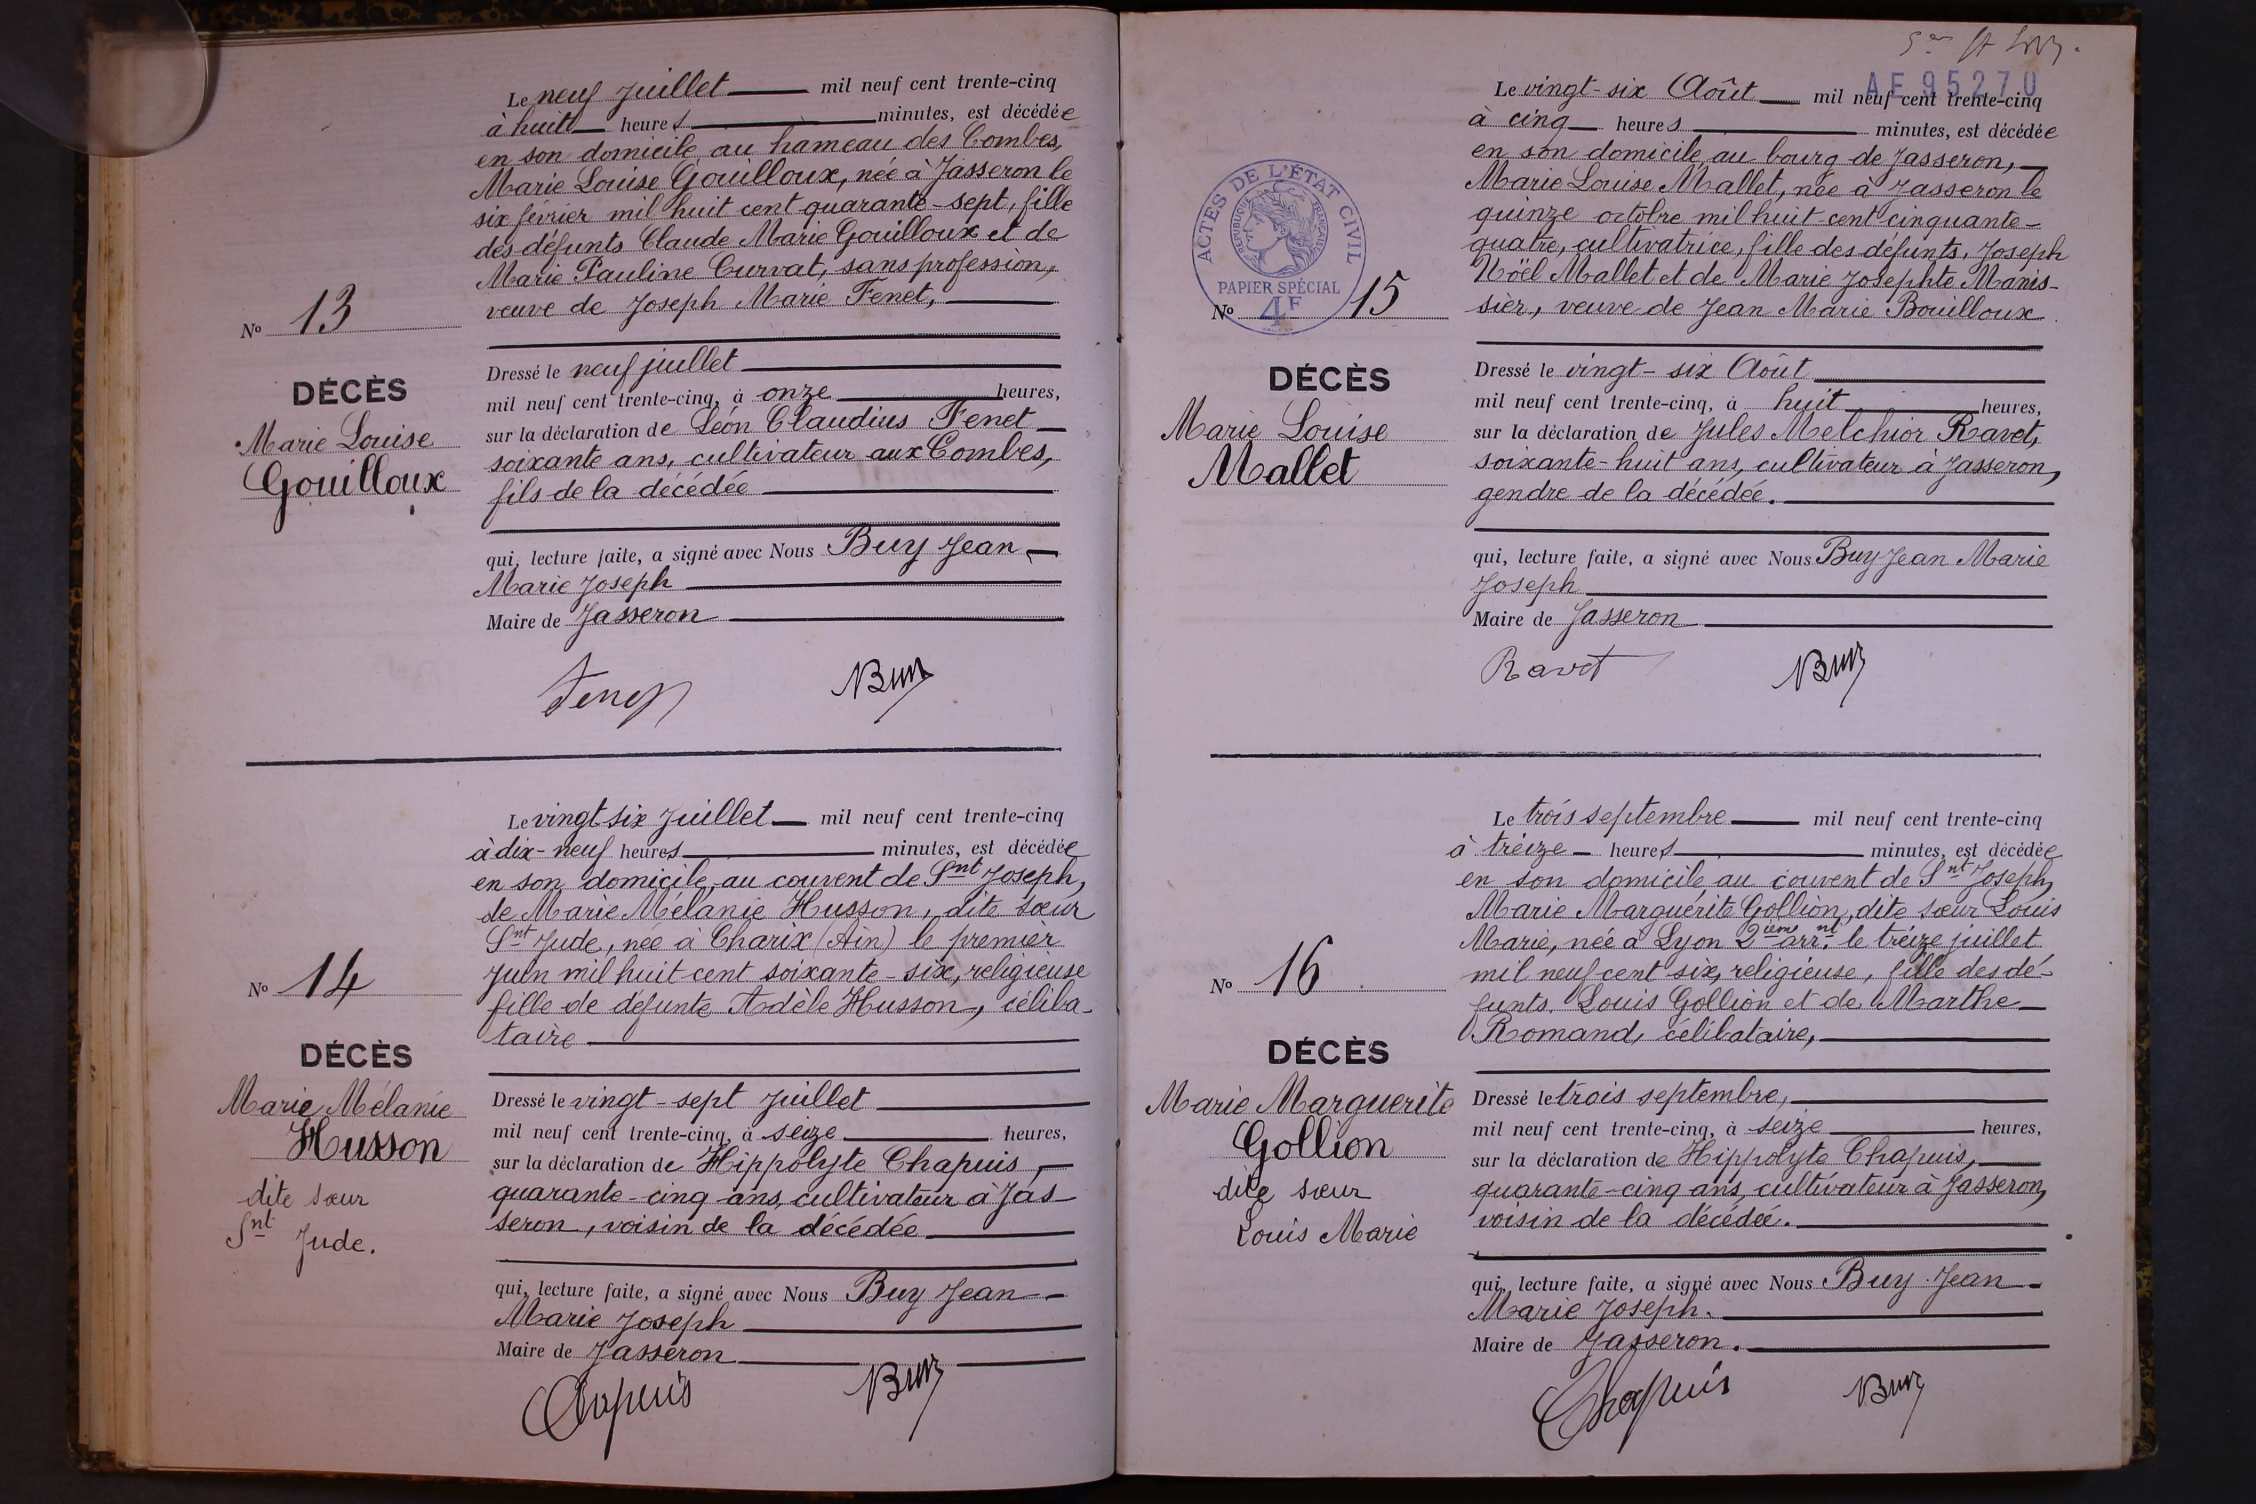 Le neuf Juillet mil neuf cent trente-cinq
à huit heures minutes, est décédée
en son domicile au hameau des Combes,
Marie Louise Gouilloux, née à Jasseron le
six février mil huit cent quarante-sept, fille
des défunts Claude Marie Gouilloux et de
Marie Pauline Curvat, sans profession,
veuve de Joseph Marie Fenet,
No 13
DÉCÈS
Marie Louise
Gouilloux
Dressé le neuf juillet
mil neuf cent trente-cinq, à onze heures,
sur la déclaration de Léon Claudius Fenet
soixante ans, cultivateur aux Combes,
fils de la décédée
qui, lecture faite, a signé avec Nous Buy Jean
Marie Joseph
Maire de Jasseron
Fenet Buy
Le vingt six Juillet mil neuf cent trente-cinq
à dix-neuf heures minutes, est décédée
en son domicile au couvent de Snt Joseph,
de Marie Mélanie Husson, dite sœur
Snt Jude, née à Charix (Ain) le premier
Juin mil huit cent soixante-six, religieuse
fille de défunte Adèle Husson, céliba-
taire
No 14
DÉCÈS
Marie Mélanie
Husson
dite sœur
Snt Jude.
Dressé le vingt-sept Juillet
mil neuf cent trente-cinq, à seize heures,
sur la déclaration de Hippolyte Chapuis,
quarante-cinq ans, cultivateur à Jas
seron, voisin de la décédée
qui, lecture faite, a signé avec Nous Buy Jean
Marie Joseph
Maire de Jasseron
Chapuis Buy
AF 95270
Le vingt-six Août mil neuf cent trente-cinq
à cinq heures minutes, est décédée
en son domicile au bourg de Jasseron,
Marie Louise Mallet, née à Jasseron le
quinze octobre mil huit-cent cinquante-
quatre, cultivatrice, fille des défunts, Joseph
Noël Mallet et de Marie Josephte Manis-
sier, veuve de Jean Marie Bouilloux
ACTES DE L'ÉTAT CIVIL
RÉPUBLIQUE FRANÇAISE
PAPIER SPÉCIAL
4F
No 15
DÉCÈS
Marie Louise
Mallet
Dressé le vingt-six Août
mil neuf cent trente-cinq, à huit heures,
sur la déclaration de Jules Melchior Ravet,
soixante-huit ans, cultivateur à Jasseron,
gendre de la décédée.
qui, lecture faite, a signé avec Nous Buy Jean Marie
Joseph
Maire de Jasseron
Ravet Buy
Le trois septembre mil neuf cent trente-cinq
à treize heures minutes, est décédée
en son domicile au couvent de Snt Joseph,
Marie Marguerite Gollion, dite sœur Louis
Marie, née à Lyon 2ième arrnt. le treize juillet
mil neuf cent six, religieuse, fille des dé-
funts Louis Gollion et de Marthe
Romand, célibataire,
No 16
DÉCÈS
Marie Marguerite
Gollion
dite sœur
Louis Marie
Dressé le trois septembre,
mil neuf cent trente-cinq, à seize heures,
sur la déclaration de Hippolyte Chapuis,
quarante-cinq ans, cultivateur à Jasseron,
voisin de la décédée.
qui, lecture faite, a signé avec Nous Buy Jean
Marie Joseph.
Maire de Jasseron.
Chapuis Buy